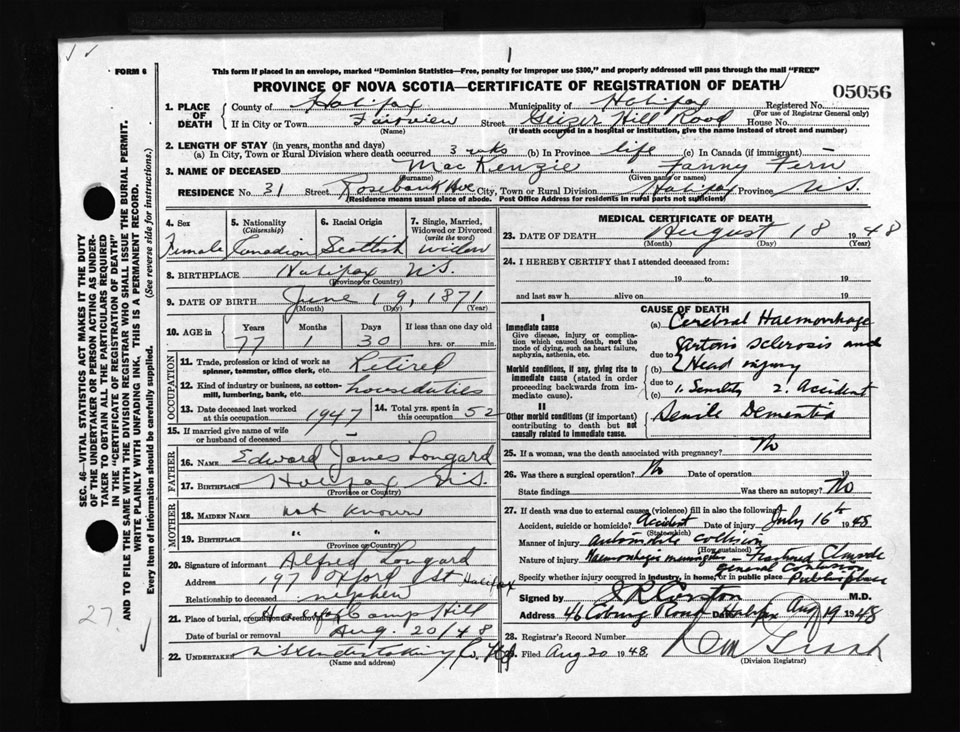 1
FORM 6
This form if placed in an envelope, marked "Dominion Statistics—Free, penalty for improper use $300," and properly addressed will pass through the mail "FREE"
PROVINCE OF NOVA SCOTIA—CERTIFICATE OF REGISTRATION OF DEATH
05056
1. PLACE OF DEATH County of Halifax Municipality of Halifax Registered No.
(For use of Registrar General only)
If in City or Town Fairview Street Geizer Hill Road House No.
(Name) (If death occurred in a hospital or institution, give the name instead of street and number)
2. LENGTH OF STAY (in years, months and days)
(a) In City, Town or Rural Division where death occurred 3 wks (b) In Province life (c) In Canada (if immigrant)
3. NAME OF DECEASED MacKenzie Fanny Fern
(Surname) (Given name or names)
RESIDENCE No. 31 Street Rosebank Ave City, Town or Rural Division Halifax Province N.S.
(Residence means usual place of abode. Post Office Address for residents in rural parts not sufficient)
4. Sex 5. Nationality (Citizenship) 6. Racial Origin 7. Single, Married, Widowed or Divorced (write the word)
Female Canadian Scottish widow
8. BIRTHPLACE Halifax N.S.
(Province or Country)
9. DATE OF BIRTH June 19, 1871
(Month) (Day) (Year)
10. AGE in Years Months Days If less than one day old
77 1 30 hrs. or min.
OCCUPATION
11. Trade, profession or kind of work as spinner, teamster, office clerk, etc. Retired
12. Kind of industry or business, as cotton-mill, lumbering, bank, etc. house duties
13. Date deceased last worked at this occupation 1947 14. Total yrs. spent in this occupation 52
15. If married give name of wife or husband of deceased
FATHER
16. NAME Edward James Longard
17. BIRTHPLACE Halifax N.S.
(Province or Country)
MOTHER
18. MAIDEN NAME not known
19. BIRTHPLACE " "
(Province or Country)
20. Signature of informant Alfred Longard
Address 197 Oxford St Halifax
Relationship to deceased nephew
21. Place of burial, cremation or removal Halifax Camp Hill
Date of burial or removal Aug. 20/48
22. UNDERTAKER N S Undertaking Co. Ltd
(Name and address)
MEDICAL CERTIFICATE OF DEATH
23. DATE OF DEATH August 18 1948
(Month) (Day) (Year)
24. I HEREBY CERTIFY that I attended deceased from:
19 to 19
and last saw h alive on 19
CAUSE OF DEATH
I
Immediate cause
Give disease, injury or complication which caused death, not the mode of dying, such as heart failure, asphyxia, asthenia, etc.
(a) Cerebral Haemorrhage
Morbid conditions, if any, giving rise to immediate cause (stated in order proceeding backwards from immediate cause).
due to sclerosis and
2 Head injury
due to
(c) 1. Senility 2. Accident
II
Other morbid conditions (if important) contributing to death but not causally related to immediate cause.
Senile Dementia
25. If a woman, was the death associated with pregnancy? No
26. Was there a surgical operation? No Date of operation 19
State findings Was there an autopsy? No
27. If death was due to external causes (violence) fill in also the following:
Accident, suicide or homicide? Accident Date of injury July 16th 1948
(State which)
Manner of injury automobile collision
(How sustained)
Nature of injury Haemorrhagic meninges - Fractured general contusions
Specify whether injury occurred in industry, in home, or in public place Public place
Signed by M.D.
Address 46 Coburg Road Halifax Date Aug 19 1948
28. Registrar's Record Number
Filed Aug 20 1948
(Division Registrar)
SEC. 46—VITAL STATISTICS ACT MAKES IT THE DUTY
OF THE UNDERTAKER OR PERSON ACTING AS UNDER-
TAKER TO OBTAIN ALL THE PARTICULARS REQUIRED
IN THE "CERTIFICATE OF REGISTRATION OF DEATH"
AND TO FILE THE SAME WITH THE DIVISION REGISTRAR WHO SHALL ISSUE THE BURIAL PERMIT.
WRITE PLAINLY WITH UNFADING INK. THIS IS A PERMANENT RECORD.
Every item of information should be carefully supplied. (See reverse side for instructions.)
27.